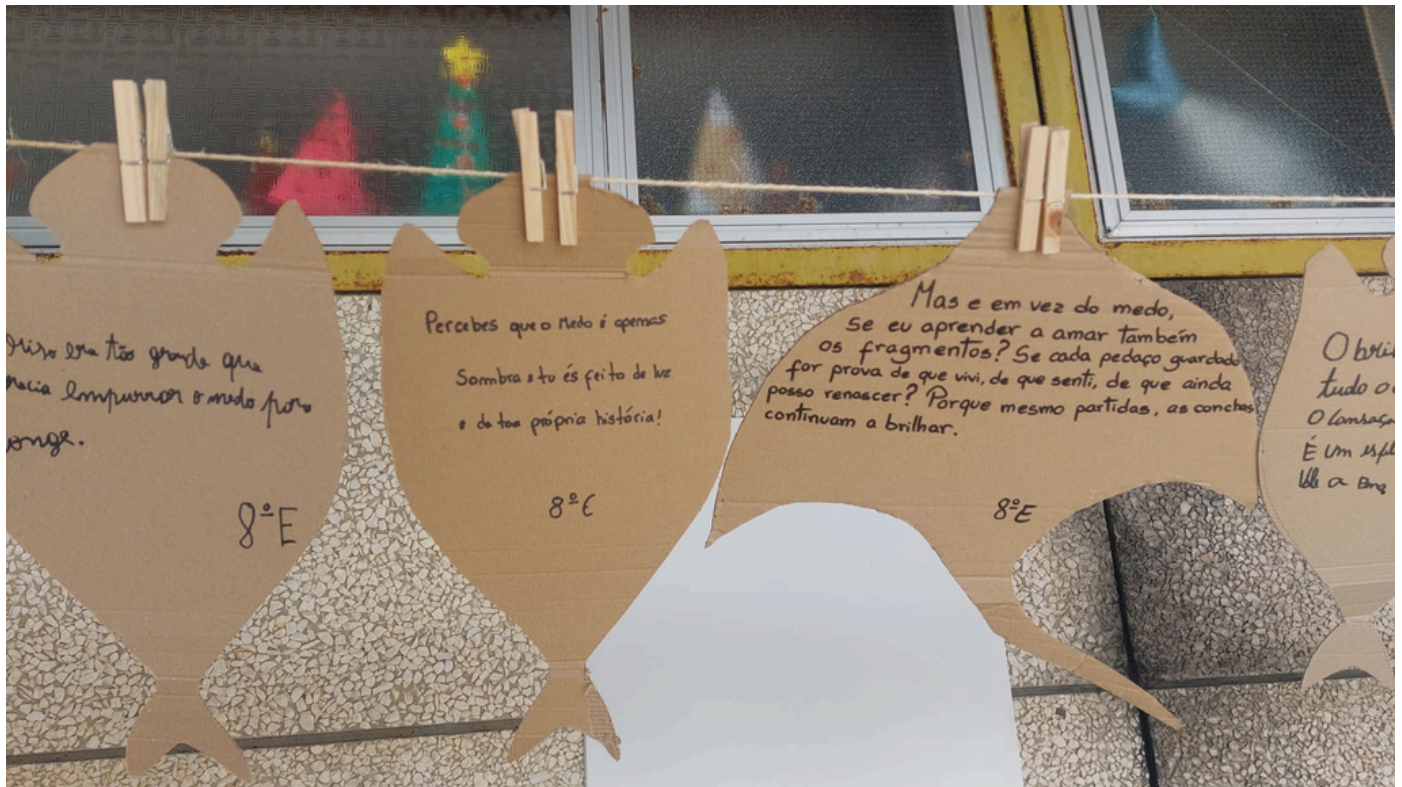 era tão grande que
empurrar o medo para
longe.
8ºE
Percebes que o Medo é apenas
Sombra e tu és feito de luz
e da tua própria história!
8ºE
Mas e em vez do medo,
se eu aprender a amar também
os fragmentos? Se cada pedaço guardado
for prova de que vivi, de que senti, de que ainda
posso renascer? Porque mesmo partidas, as conchas
continuam a brilhar.
8ºE
O bril
tudo o
O cansaço
É um